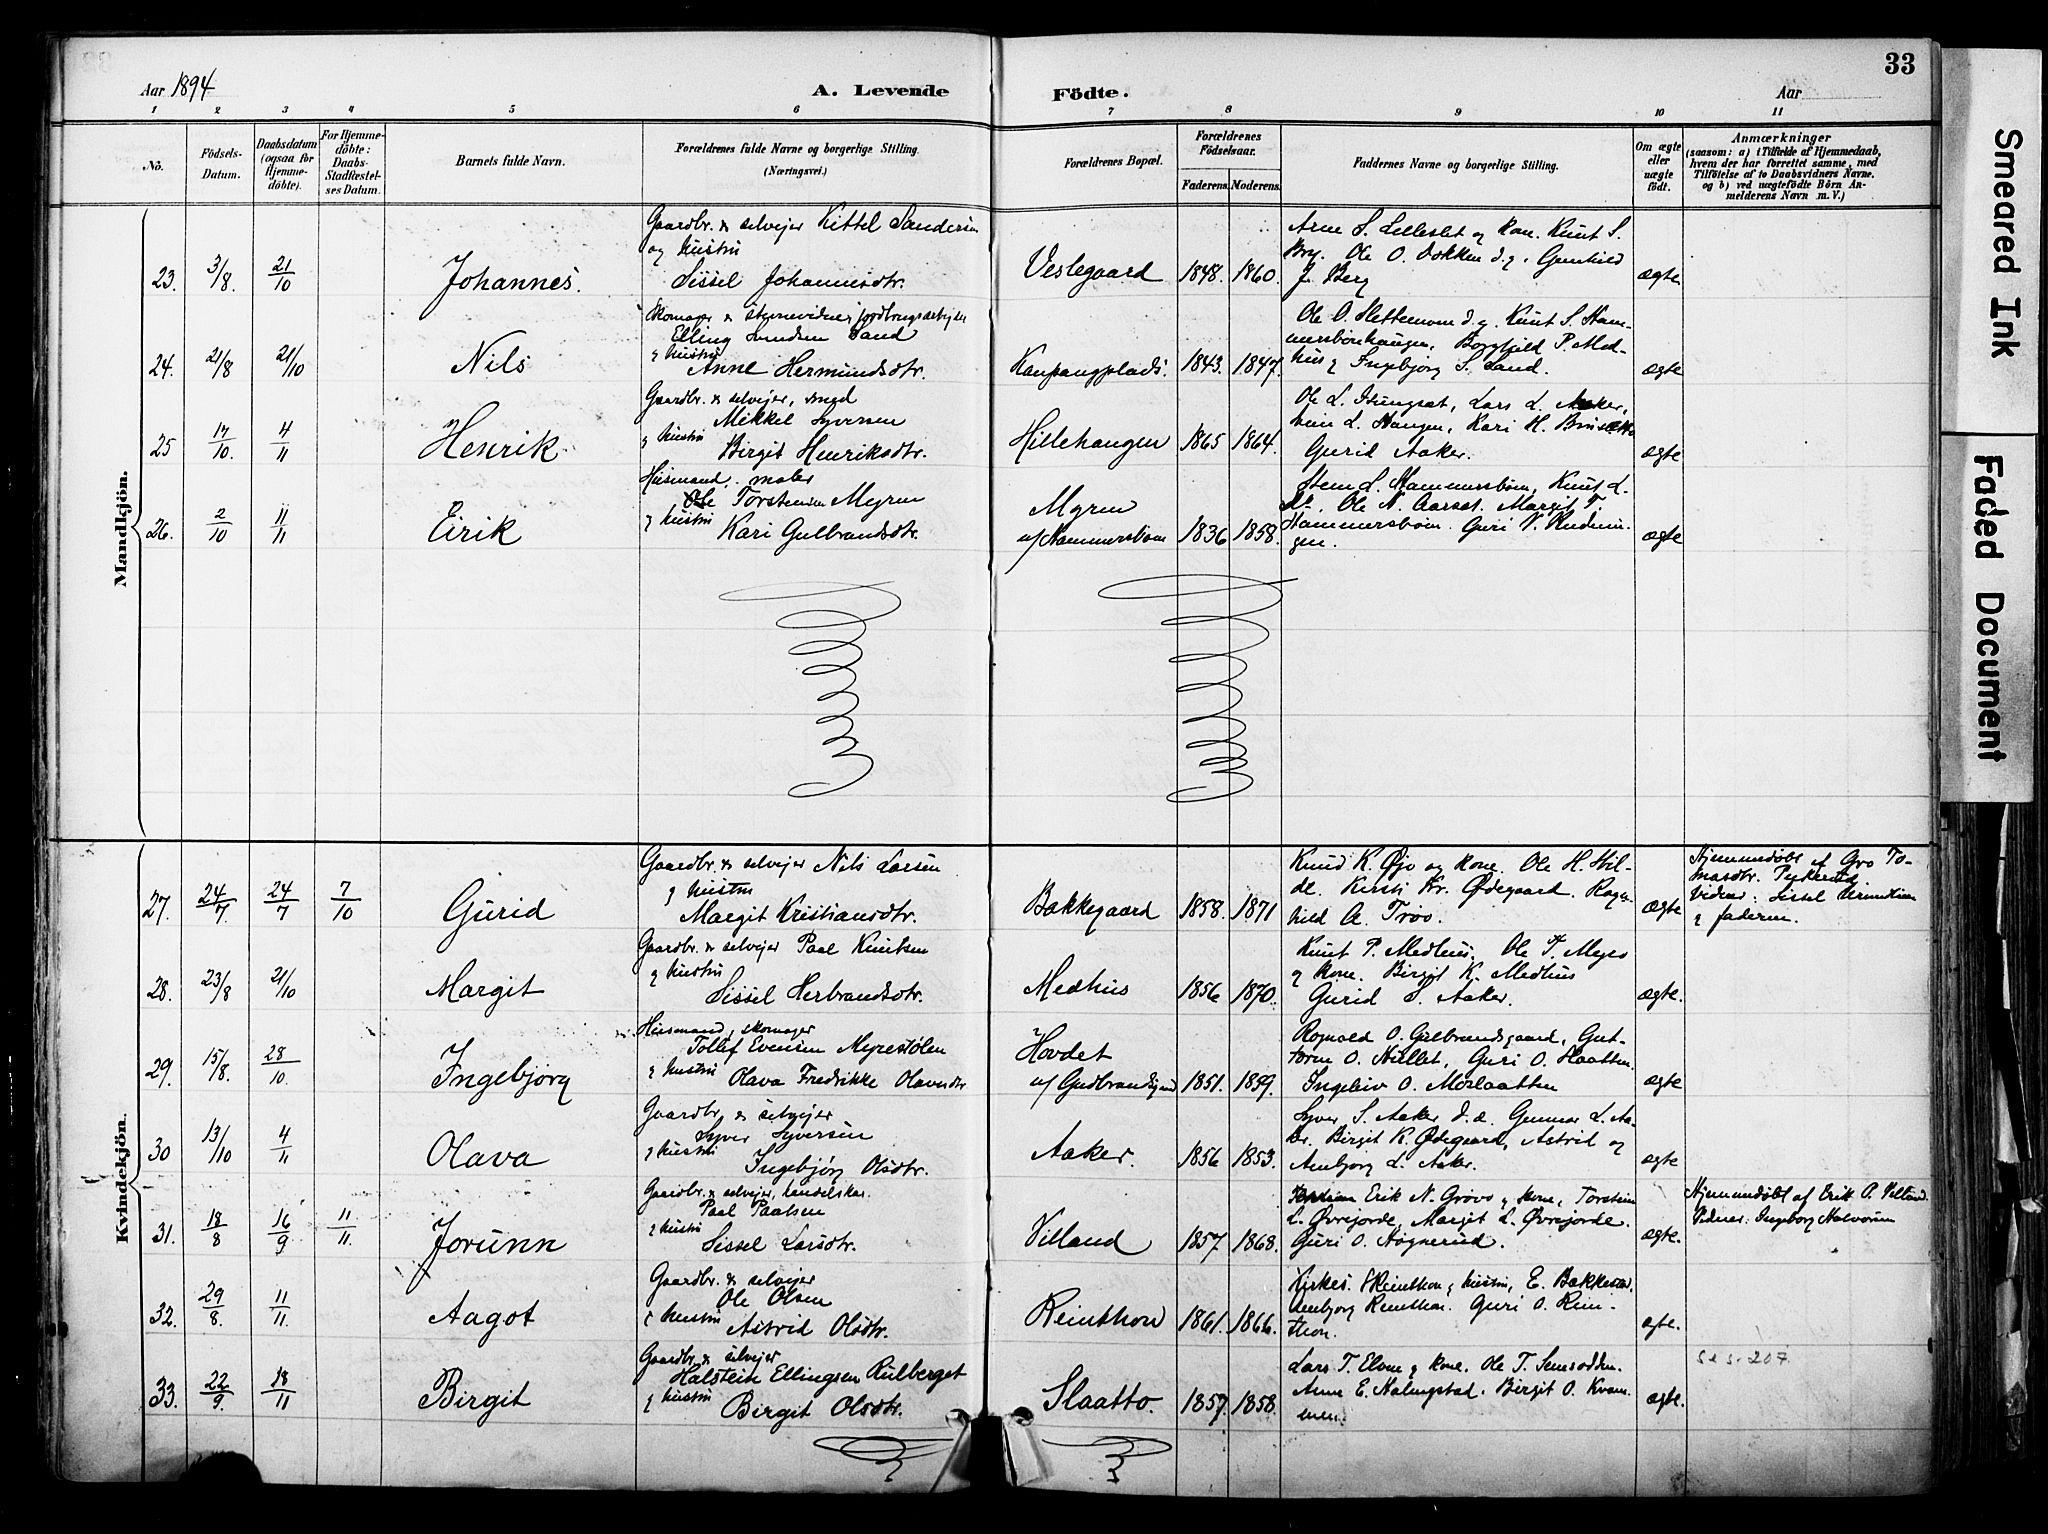 33
Aar 1894
A. Levende Födte.
Aar
1 2 3 4 5 6 7 8 9 10 11
No.
Födsels-Datum.
Daabsdatum (ogsaa for Hjemmedöbte).
For Hjemmedöbte: Daabs-Stadfæstelses Datum.
Barnets fulde Navn.
Forældrenes fulde Navne og borgerlige Stilling.
(Næringsvei.)
Forældrenes Bopæl.
Forældrenes Födselsaar.
Faderens. Moderens.
Faddernes Navne og borgerlige Stilling.
Om ægte eller uægte födt.
Anmærkninger
(saasom: a) i Tilfælde af Hjemmedaab, hvem der har forrettet samme, med Tilföielse af to Daabsvidners Navne. og b) ved uægtefödte Börn Anmelderens Navn m. V.)
Mandkjön.
Gaardbr. & selvejer Kittel Sandersen
og hustru
23. 3/8. 21/10 Johannes. Sissel Johannesdtr. Veslegaard 1848. 1860. J. Berg ægte
Arne S. Lilleslet og kone. Knut S.
Brg. Ole O. Dokken d.y. Gunhild
Skomager & stenevidne jordbrugsarbejder
Elling Svendsen Sand
24. 21/8 21/10 Nils & hustru Anne Hermundsdtr. Kaupangplads. 1843. 1847. hus & Ingebjørg S. Sand. ægte
Gaardbr. & selvejer, smed
Mikkel Syversen
25 17/10. 4/11 Henrik & hustru Birgit Henriksdtr. Hillehaugen 1865 1864. Gurid Aaker. ægte
Husmand, maler
Ole Torstensen Myren
26. 2/10 11/11 Eirik & hustru Kari Gulbrandsdtr. Myren u/ Hammersbøen 1836 1858. ægte
Stein L. Hammersbøen, Knut L.
Ole N. Aarset. Margit T.
Hammersbøen. Guri
Kvindekjön.
Gaardbr. & selvejer Nils Larsen
27. 24/7. 24/7 7/10 Gurid & hustru Margit Kristiansdtr. Bakkegaard 1858. 1871 ægte
Knud K. Øjo og kone. Ole H.
Kersti Kr. Ødegaard. Ragn-
hild A. Trøo.
Hjemmedøbt af Gro To-
masdtr.
Vidner: Sissel
& faderen.
Gaardbr. & selvejer Paal Knutsen
28. 23/8 21/10 Margit & hustru Sissel Herbrandsdtr. Medhus 1856 1870. ægte.
Knut P. Medhus. Ole T. Myro
& kone. Birgit K. Medhus
Gurid S. Aaker.
Husmand, skomager
Tollef Evensen Myrestølen
29. 15/8. 28/10. Ingebjørg & hustru Olava Fredrikke Olavsdtr. Hovdet u/ Gudbrandsgaard 1851. 1859. ægte
Rognald O. Gulbrandsgaard, Gut-
torm O. Hullet, Guri O. Slaatten.
Ingeleiv O. Moslaatten
Gaardbr. & selvejer
Syver Syversen
30 13/10 4/11 Olava & hustru Ingebjørg Olsdtr. Aaker. 1856 1853. ægte
Syver S. Aaker d.æ. Gunnar L. Aa-
ker. Birgit K. Ødegaard, Astrid og
Aenbjørg L. Aaker.
Gaardbr. & selvejer, handelskar.
Paal Paalsen
31. 18/8 16/9 11/11. Jorunn & hustru Sissel Larsdtr. Villand 1857. 1868. ægte.
Erik N. Grøvo & kone, Torstein
L. Øvrejorde, Margit L. Øvrejorde.
Guri O. Høgnerud.
Hjemmedøbt af Erik P. Villand.
Vidner: Ingeborg Halvorsen
Gaardbr. & selvejer
Ole Olsen
32. 29/8. 11/11. Aagot & hustru Astrid Olsdtr. Reinthon 1861. 1866. ægte.
Kirkes. Reinthon & hustru, E. Bakkegaard.
Aenbjørg Reinthon. Guri O. Rein-
thon.
Gaardbr. & selvejer
Halstein Ellingsen Rulberget
33. 22/9. 18/11 Birgit & hustru Birgit Olsdtr. Slaatto. 1857. 1858. ægte.
Lars T. Elven & kone. Ole T.
Arne E. Kalmgstad. Birgit O. Kvam-
men.
se s. 207.
Smeared Ink
Faded Document